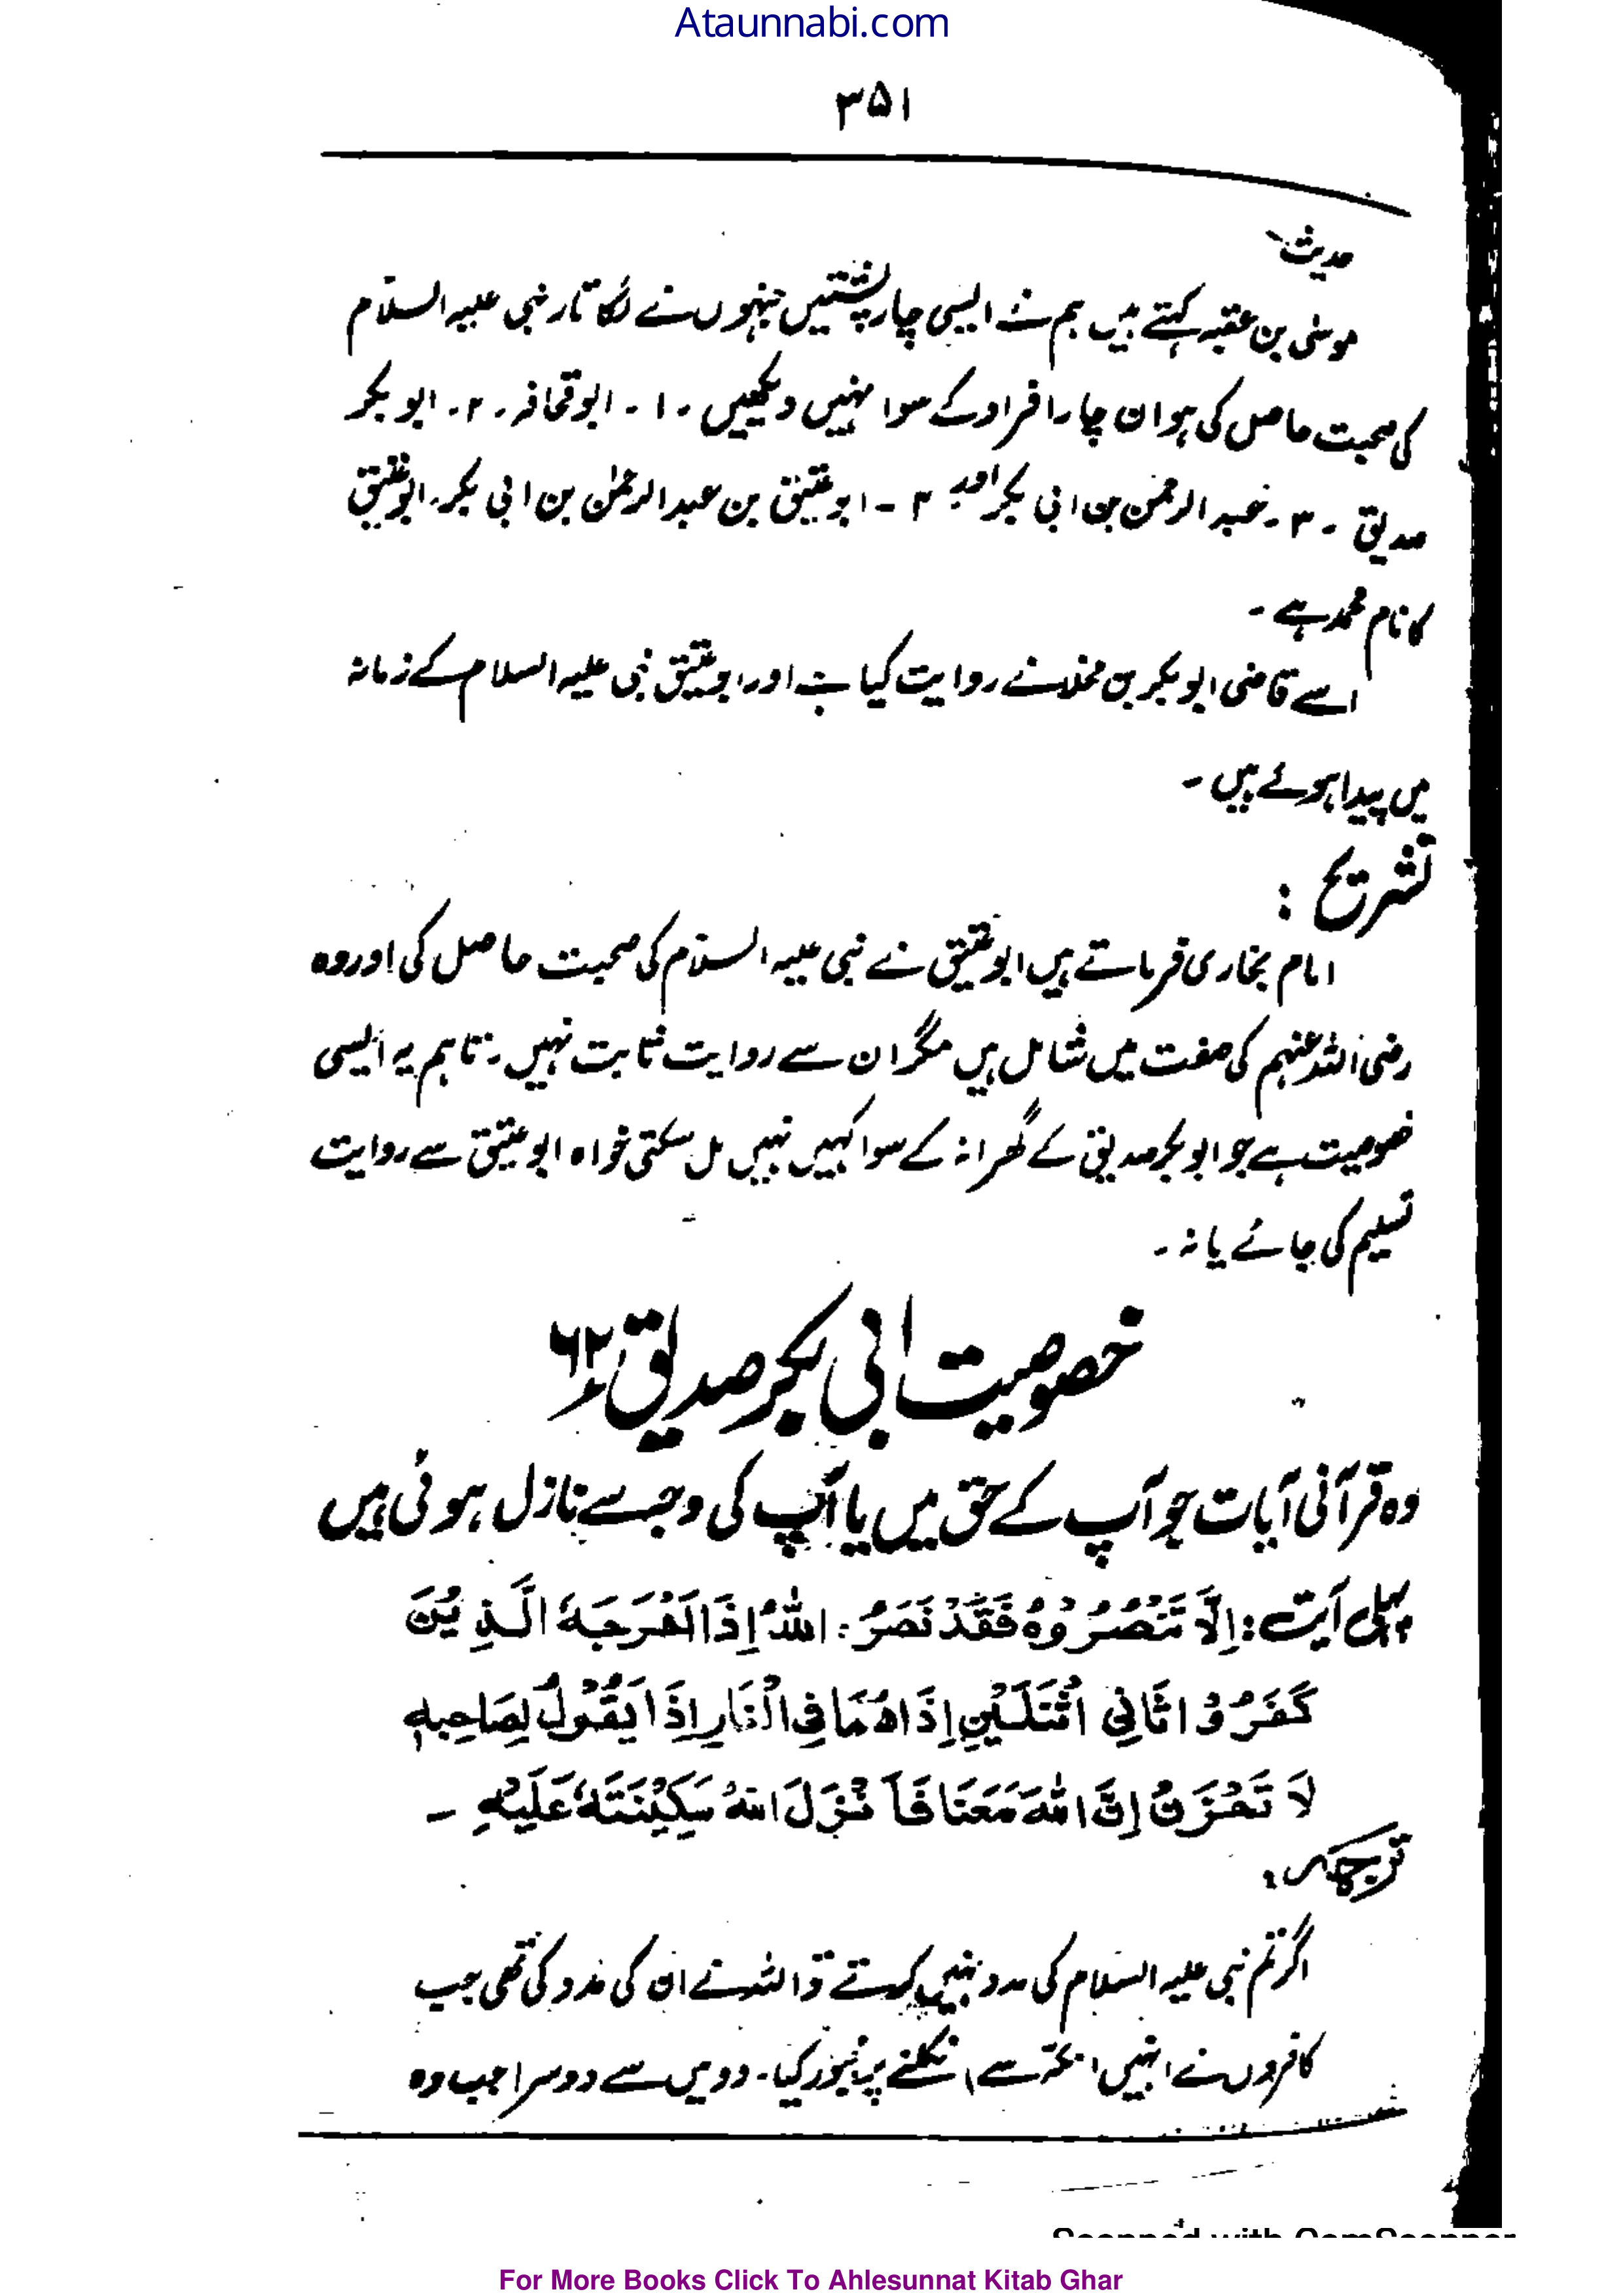 Ataunnabi.com
۳۵۱
حدیث
موسٰی بن عقبہ کہتے ہیں ہم نے ایسی چار پشتیں جنہوں نے لگاتار نبی علیہ السلام
کی صحبت حاصل کی ہو ان چار افراد کے سوا نہیں دیکھیں ۔ ۱ ۔ ابو قحافہ ۔ ۲ ۔ ابو بکر
صدیق ۔ ۳ ۔ عبد الرحمٰن بن ابی بکر اور ۴ ۔ ابو عتیق بن عبد الرحمٰن بن ابی بکر ۔ ابو عتیق
کا نام محمد ہے ۔
اسے قاضی ابو بکر بن مخلد نے روایت کیا ہے اور ابو عتیق نبی علیہ السلام کے زمانہ
میں پیدا ہوئے ہیں ۔
تشریح :
امام بخاری فرماتے ہیں ابو عتیق نے نبی علیہ السلام کی صحبت حاصل کی اور وہ
رضی اللہ عنہم کی صفت میں شامل ہیں مگر ان سے روایت ثابت نہیں ۔ تاہم یہ ایسی
خصوصیت ہے جو ابو بکر صدیق کے گھرانہ کے سوا کہیں نہیں مل سکتی خواہ ابو عتیق سے روایت
تسلیم کی جائے یا نہ ۔
خصوصیت ابی بکر صدیق ۶۲
وہ قرآنی آیات جو آپ کے حق میں یا آپ کی وجہ سے نازل ہوئی ہیں
پہلی آیت : اِلَّا تَنْصُرُوْهُ فَقَدْ نَصَرَهُ اللهُ اِذَا اَخْرَجَهٗ الَّذِيْنَ
كَفَرُوْا ثَانِيَ اثْنَيْنِ اِذَا هُمَا فِي الْغَارِ اِذَا يَقُوْلُ لِصَاحِبِهٖ
لَا تَحْزَنْ اِنَّ اللهَ مَعَنَا فَاَنْزَلَ اللهُ سَكِيْنَتَهٗ عَلَيْهِ ۔
ترجمہ :
اگر تم نبی علیہ السلام کی مدد نہیں کرتے تو اللہ نے ان کی مدد کی تھی جب
کافروں نے انہیں (مکہ سے) نکلنے پر مجبور کیا ۔ دو میں سے دوسرا جب وہ
Scanned with CamScanner
For More Books Click To Ahlesunnat Kitab Ghar